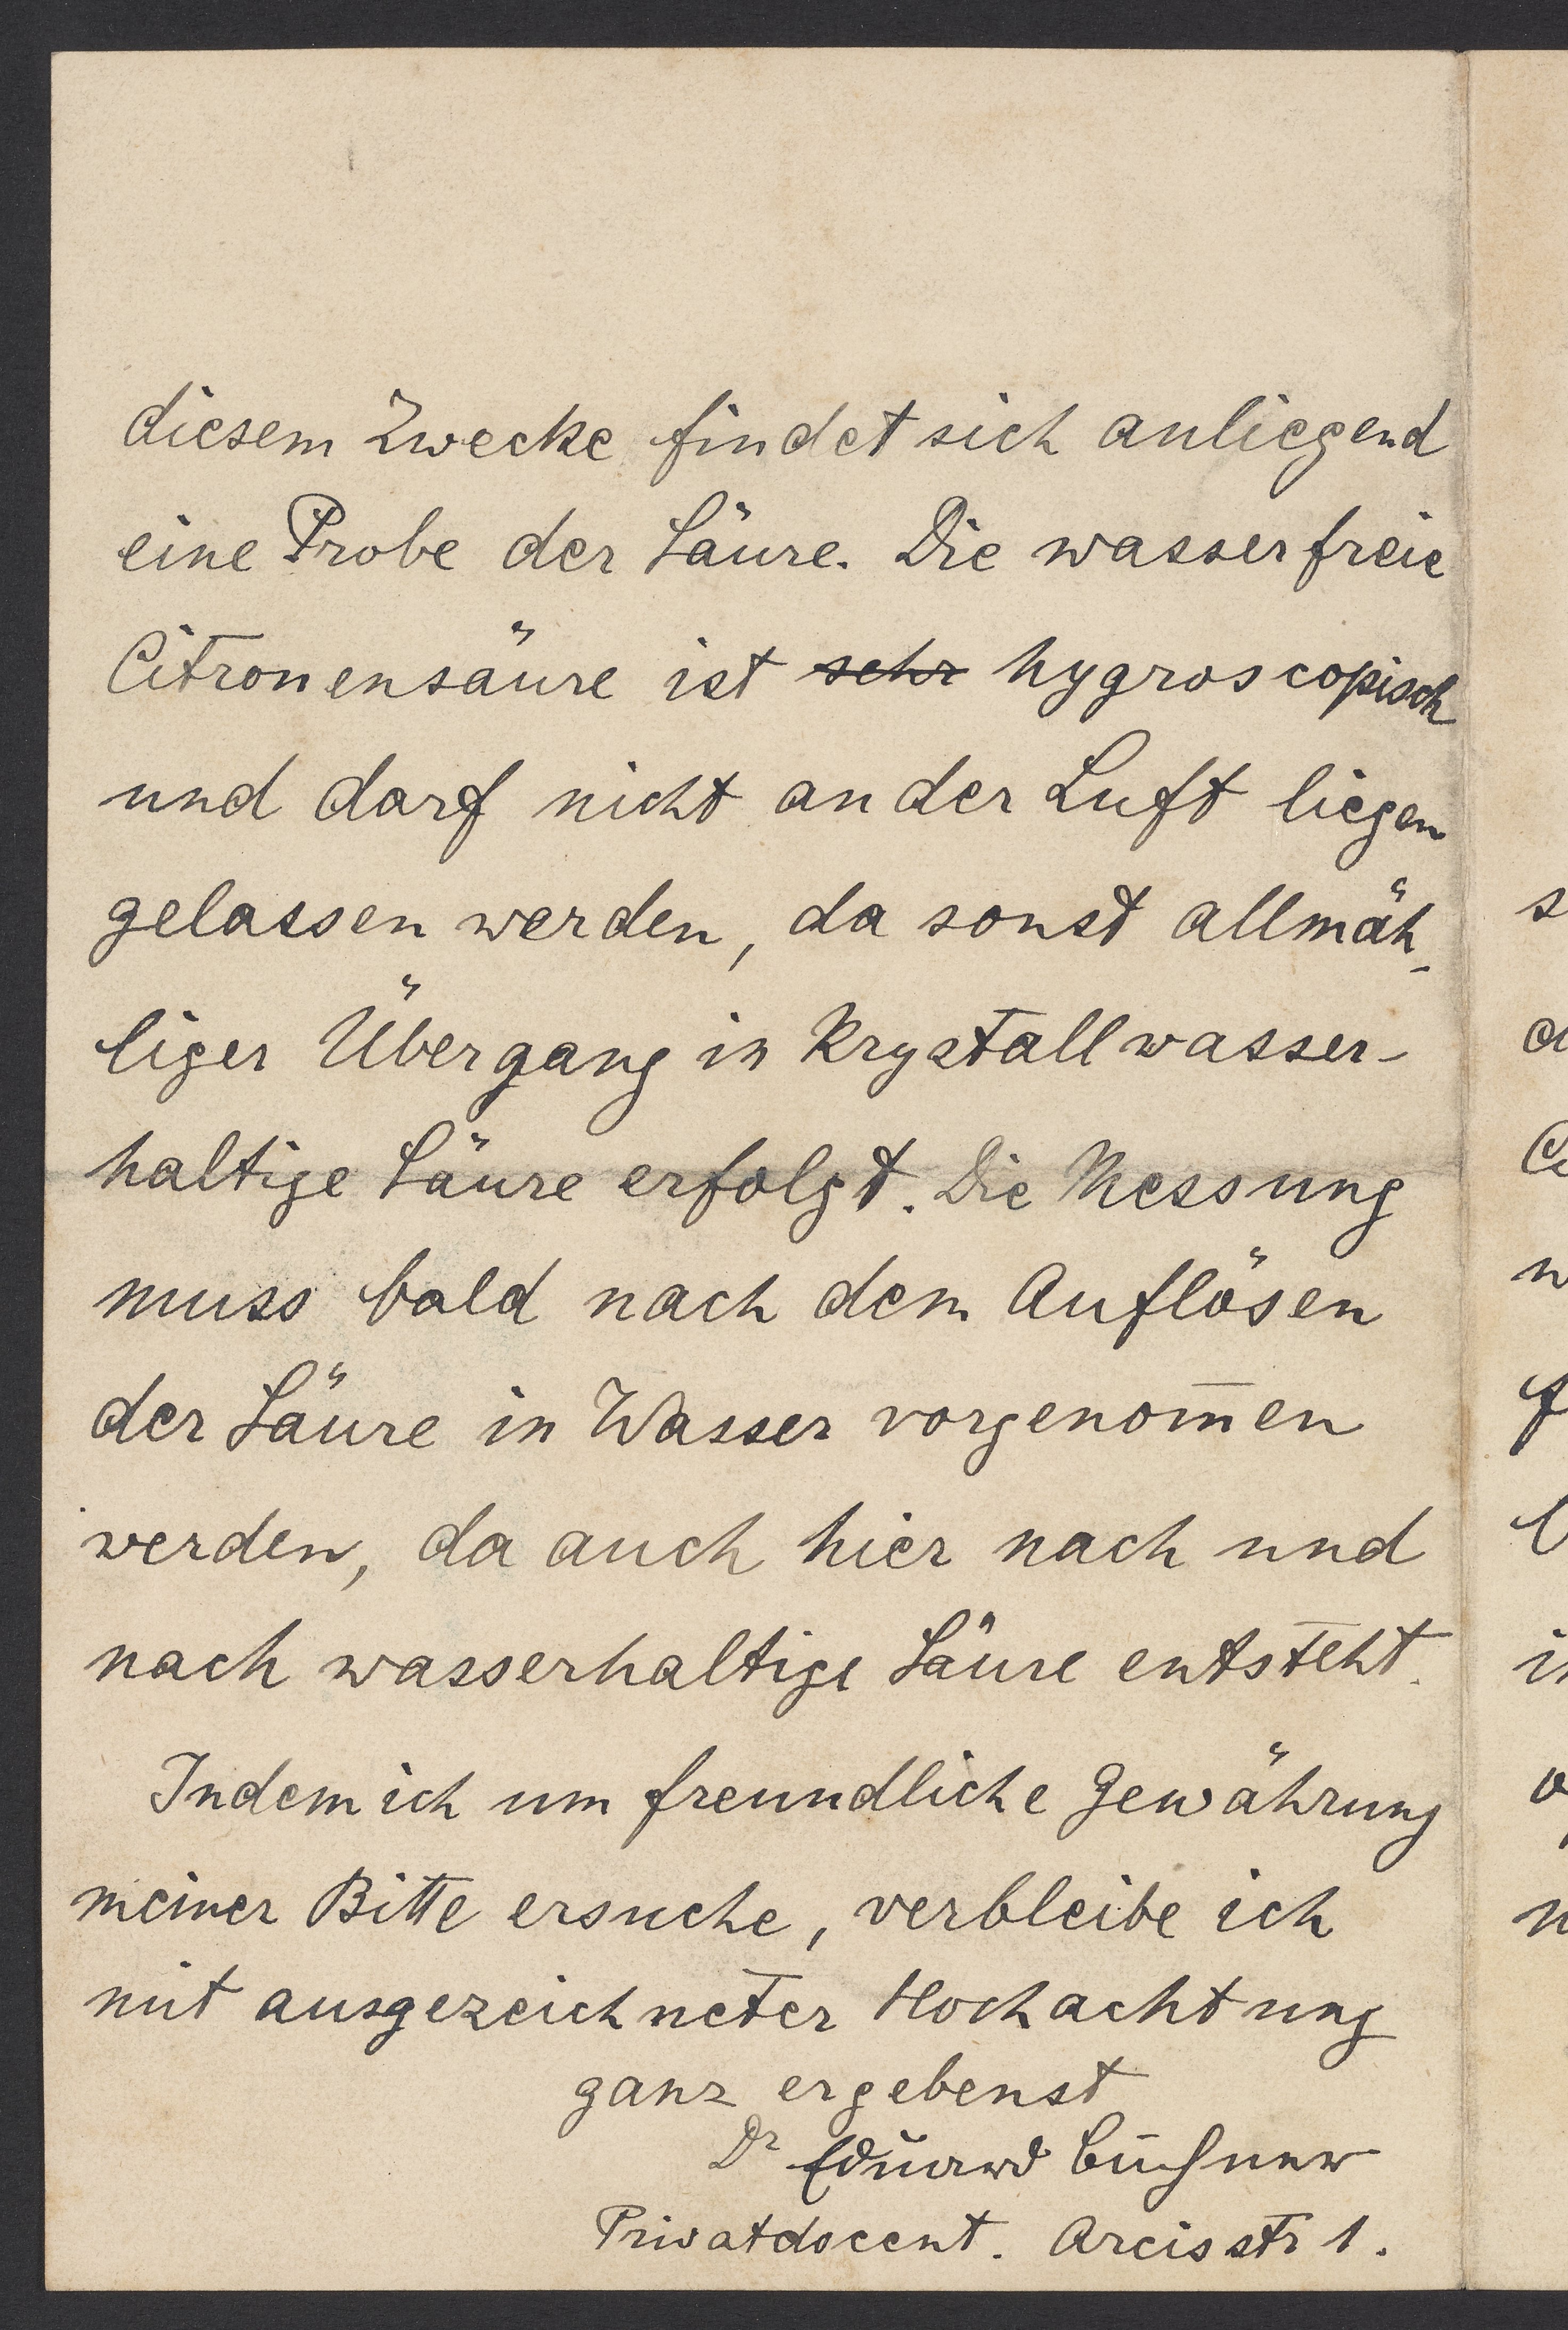 diesem Zwecke findet sich anliegend
eine Probe der Säure. Die wasserfreie
Citronensäure ist sehr hygroscopisch
und darf nicht an der Luft liegen
gelassen werden, da sonst allmäh-
liger Übergang in Krystallwasser-
haltige Säure erfolgt. Die Messung
muss bald nach dem Auflösen
der Säure in Wasser vorgenom̅en
werden, da auch hier nach und
nach wasserhaltige Säure entsteht.
Indem ich um freundliche Gewährung
meiner Bitte ersuche, verbleibe ich
mit ausgezeichneter Hochachtung
ganz ergebenst
Dr Eduard Buchner
Privatdocent. Arcisstr 1.